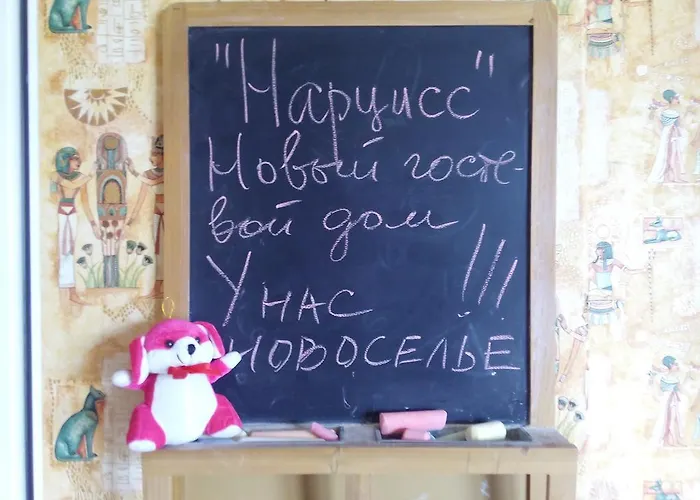 "Нарцисс"
Новый госте-
вой дом
У нас !!!
НОВОСЕЛЬЕ